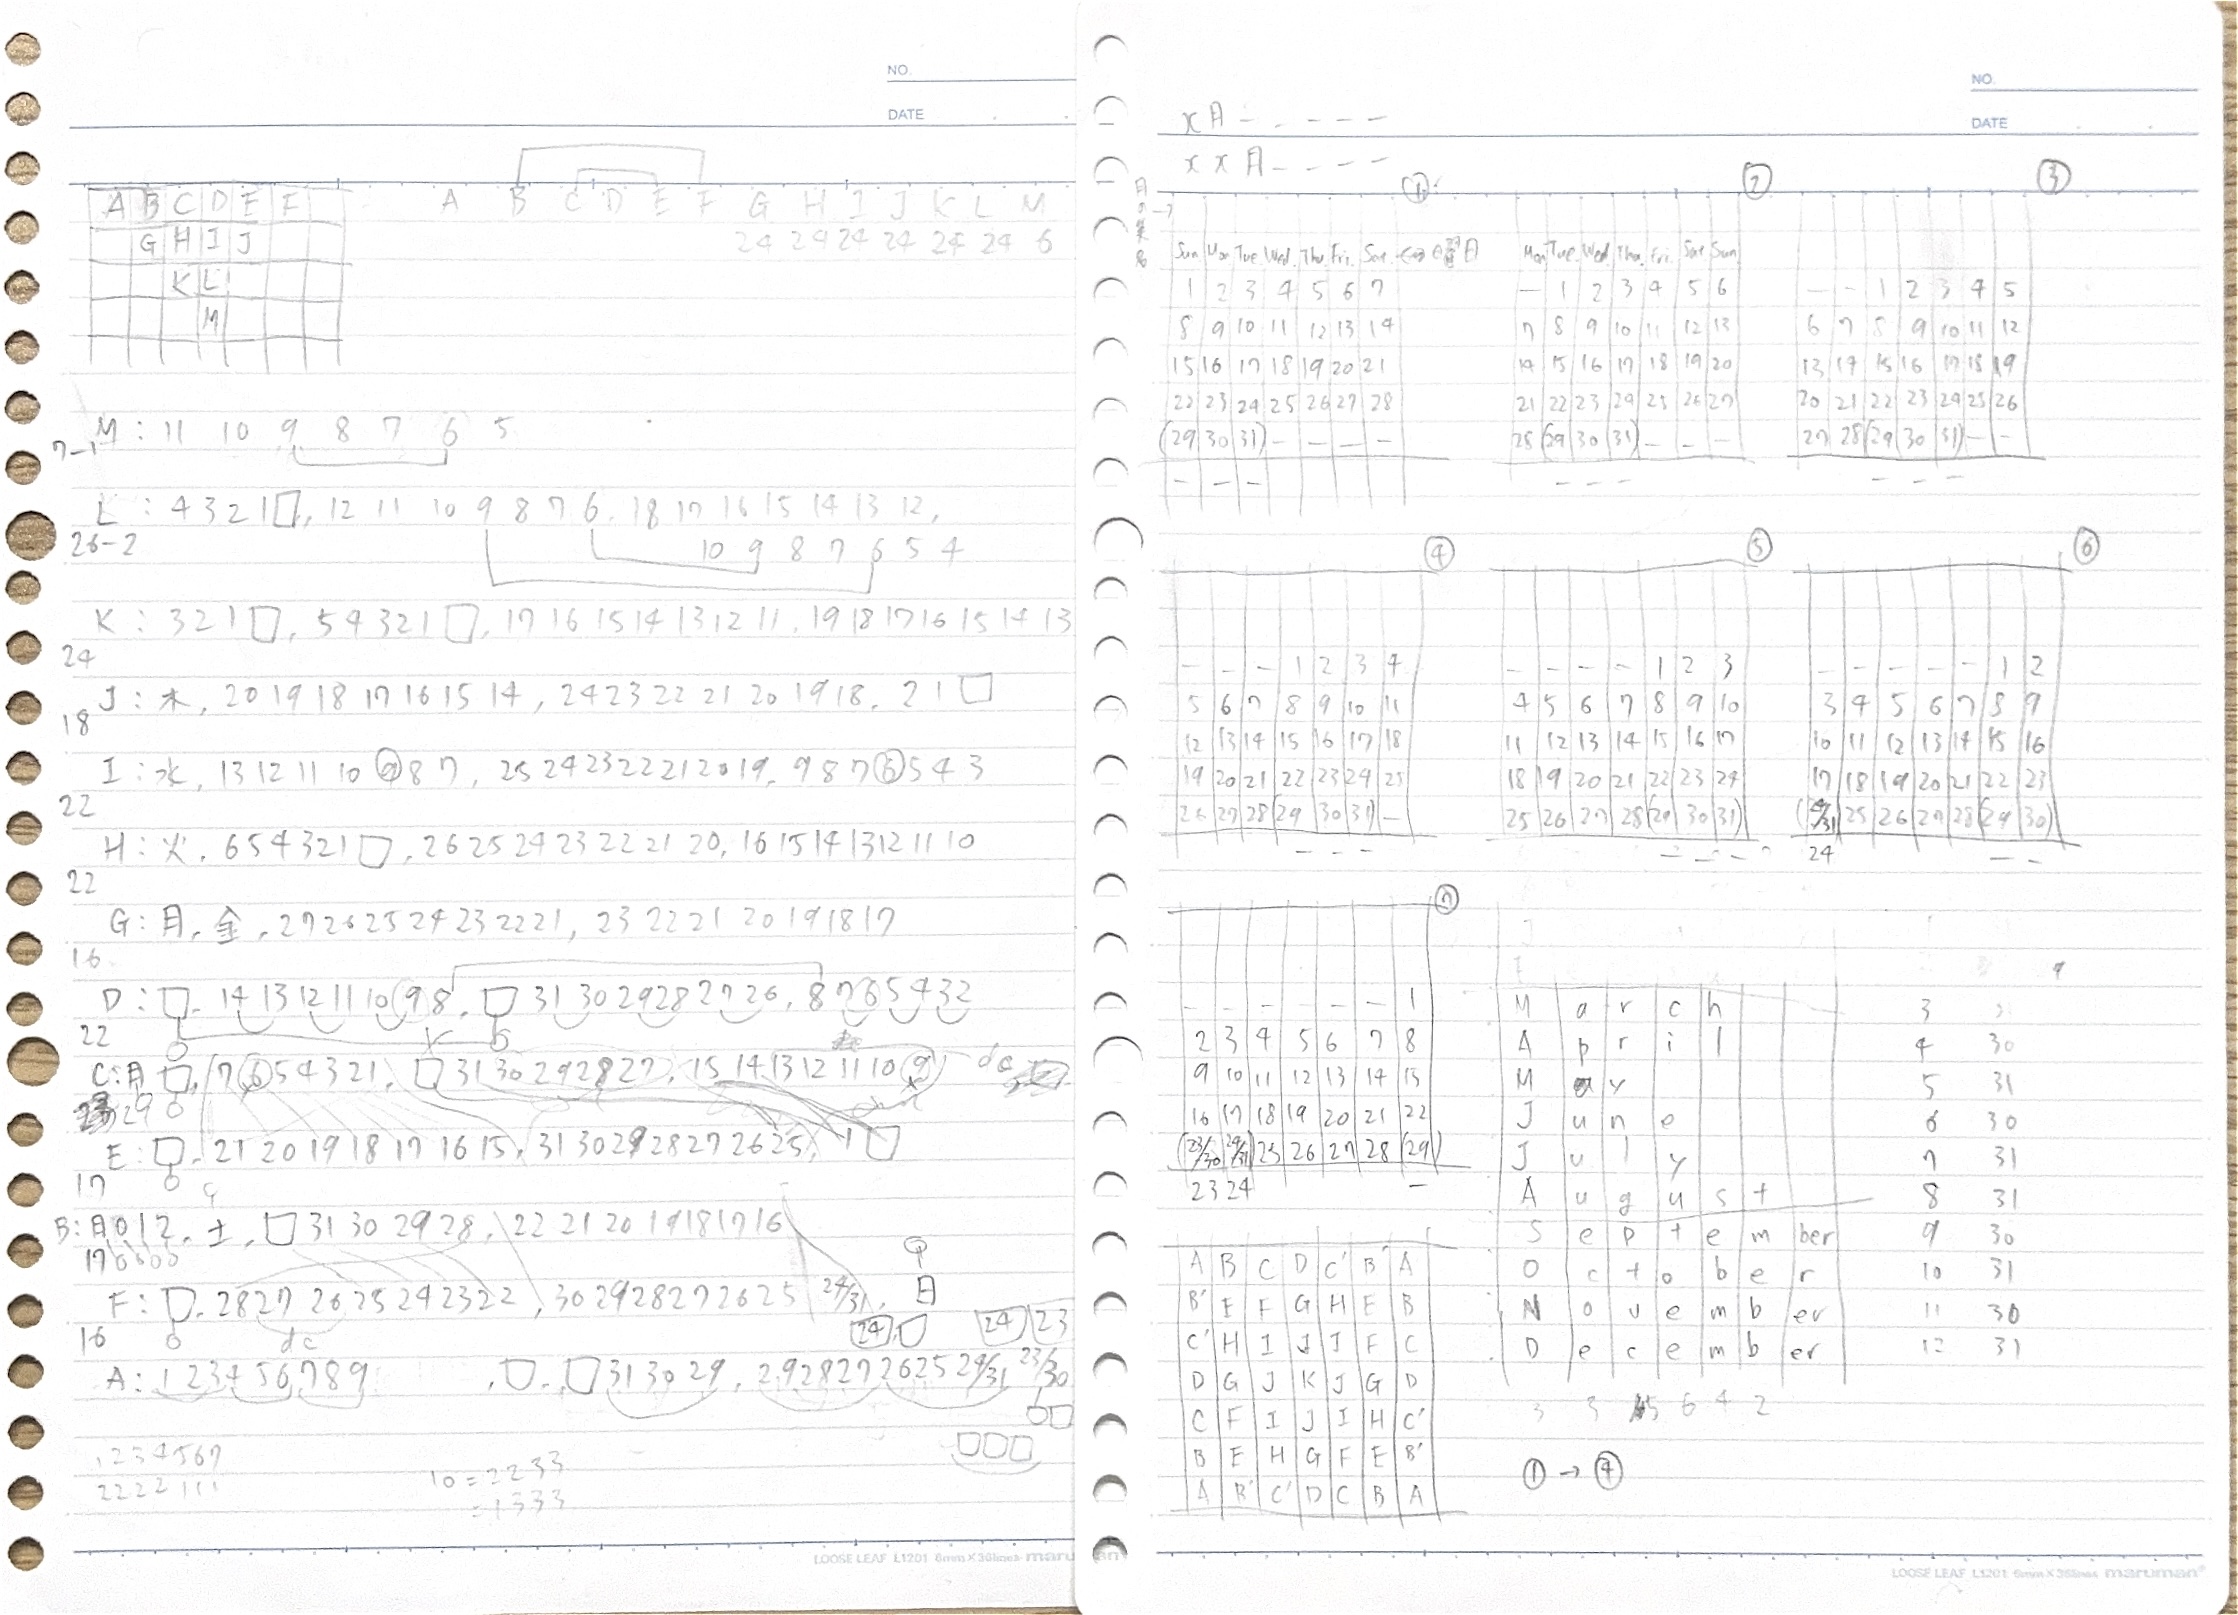 NO.
DATE
A B C D E F
A B C D E F G H I J K L M
G H I J
24 24 24 24 24 24 6
K L
M
M : 11 10 9 8 7 6 5
7-1
L : 4 3 2 1 □, 12 11 10 9 8 7 6, 18 17 16 15 14 13 12,
26-2
10 9 8 7 6 5 4
K : 3 2 1 □, 5 4 3 2 1 □, 17 16 15 14 13 12 11, 19 18 17 16 15 14 13
24
J : 木, 20 19 18 17 16 15 14, 24 23 22 21 20 19 18, 2 1 □
18
I : 水, 13 12 11 10 9 8 7, 25 24 23 22 21 20 19, 9 8 7 6 5 4 3
22
H : 火, 6 5 4 3 2 1 □, 26 25 24 23 22 21 20, 16 15 14 13 12 11 10
22
G : 月, 金, 27 26 25 24 23 22 21, 23 22 21 20 19 18 17
16
D : □, 14 13 12 11 10 9 8, □ 31 30 29 28 27 26, 8 7 6 5 4 3 2
22
C : 月 □, 7 6 5 4 3 2 1, □ 31 30 29 28 27, 15 14 13 12 11 10 9
29
E : □, 21 20 19 18 17 16 15, 31 30 29 28 27 26 25, 1 □
17
B : 月 0 1 2, 土, □ 31 30 29 28, 22 21 20 19 18 17 16
17
F : □, 28 27 26 25 24 23 22, 30 29 28 27 26 25 24/31, 月
16
24 □ 24 23
A : 1 2 3 4 5 6 7 8 9 , □, □ 31 30 29, 29 28 27 26 25 24/31 23/30
1 2 3 4 5 6 7
2 2 2 2 1 1 1
10 = 2 2 3 3
= 1 3 3 3
LOOSE LEAF L1201 6mm×36lines maruman
NO.
DATE
x月 - - - - - -
x x月 - - - - -
① ② ③
Sun Mon Tue Wed. Thu. Fri. Sat.
1 2 3 4 5 6 7
8 9 10 11 12 13 14
15 16 17 18 19 20 21
22 23 24 25 26 27 28
(29 30 31) - - - -
- - -
Mon Tue Wed Thu. Fri. Sat Sun
- 1 2 3 4 5 6
7 8 9 10 11 12 13
14 15 16 17 18 19 20
21 22 23 24 25 26 27
28 (29 30 31) - - -
- - -
- - 1 2 3 4 5
6 7 8 9 10 11 12
13 14 15 16 17 18 19
20 21 22 23 24 25 26
27 28 (29 30 31) - -
- - -
④ ⑤ ⑥
- - - 1 2 3 4
5 6 7 8 9 10 11
12 13 14 15 16 17 18
19 20 21 22 23 24 25
26 27 28 (29 30 31) -
- - -
- - - - 1 2 3
4 5 6 7 8 9 10
11 12 13 14 15 16 17
18 19 20 21 22 23 24
25 26 27 28 (29 30 31)
- - - -
- - - - - 1 2
3 4 5 6 7 8 9
10 11 12 13 14 15 16
17 18 19 20 21 22 23
(24/31 25 26 27 28 (29 30)
24 - -
⑦
- - - - - - 1
2 3 4 5 6 7 8
9 10 11 12 13 14 15
16 17 18 19 20 21 22
(23/30 24/31 25 26 27 28 (29)
23 24 -
March 3
April 4 30
May 5 31
June 6 30
July 7 31
August 8 31
September 9 30
October 10 31
November 11 30
December 12 31
3 3 5 6 4 2
① → ④
A B C D C' B' A
B' E F G H E B
C' H I J I F C
D G J K J G D
C F I J I H C'
B E H G F E B'
A B' C' D C B A
LOOSE LEAF L1201 6mm×36lines maruman